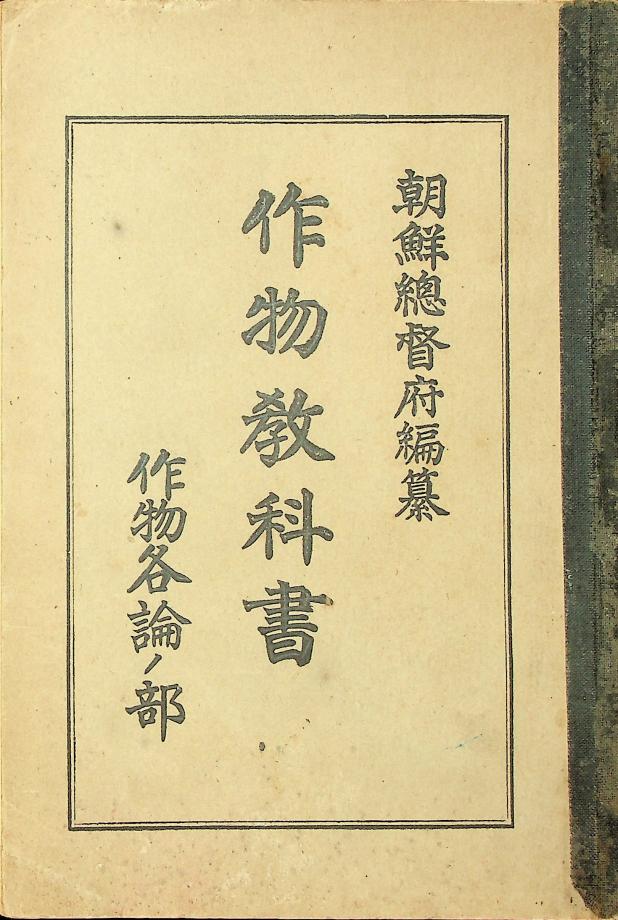 朝鮮總督府編纂
作物敎科書
作物各論ノ部